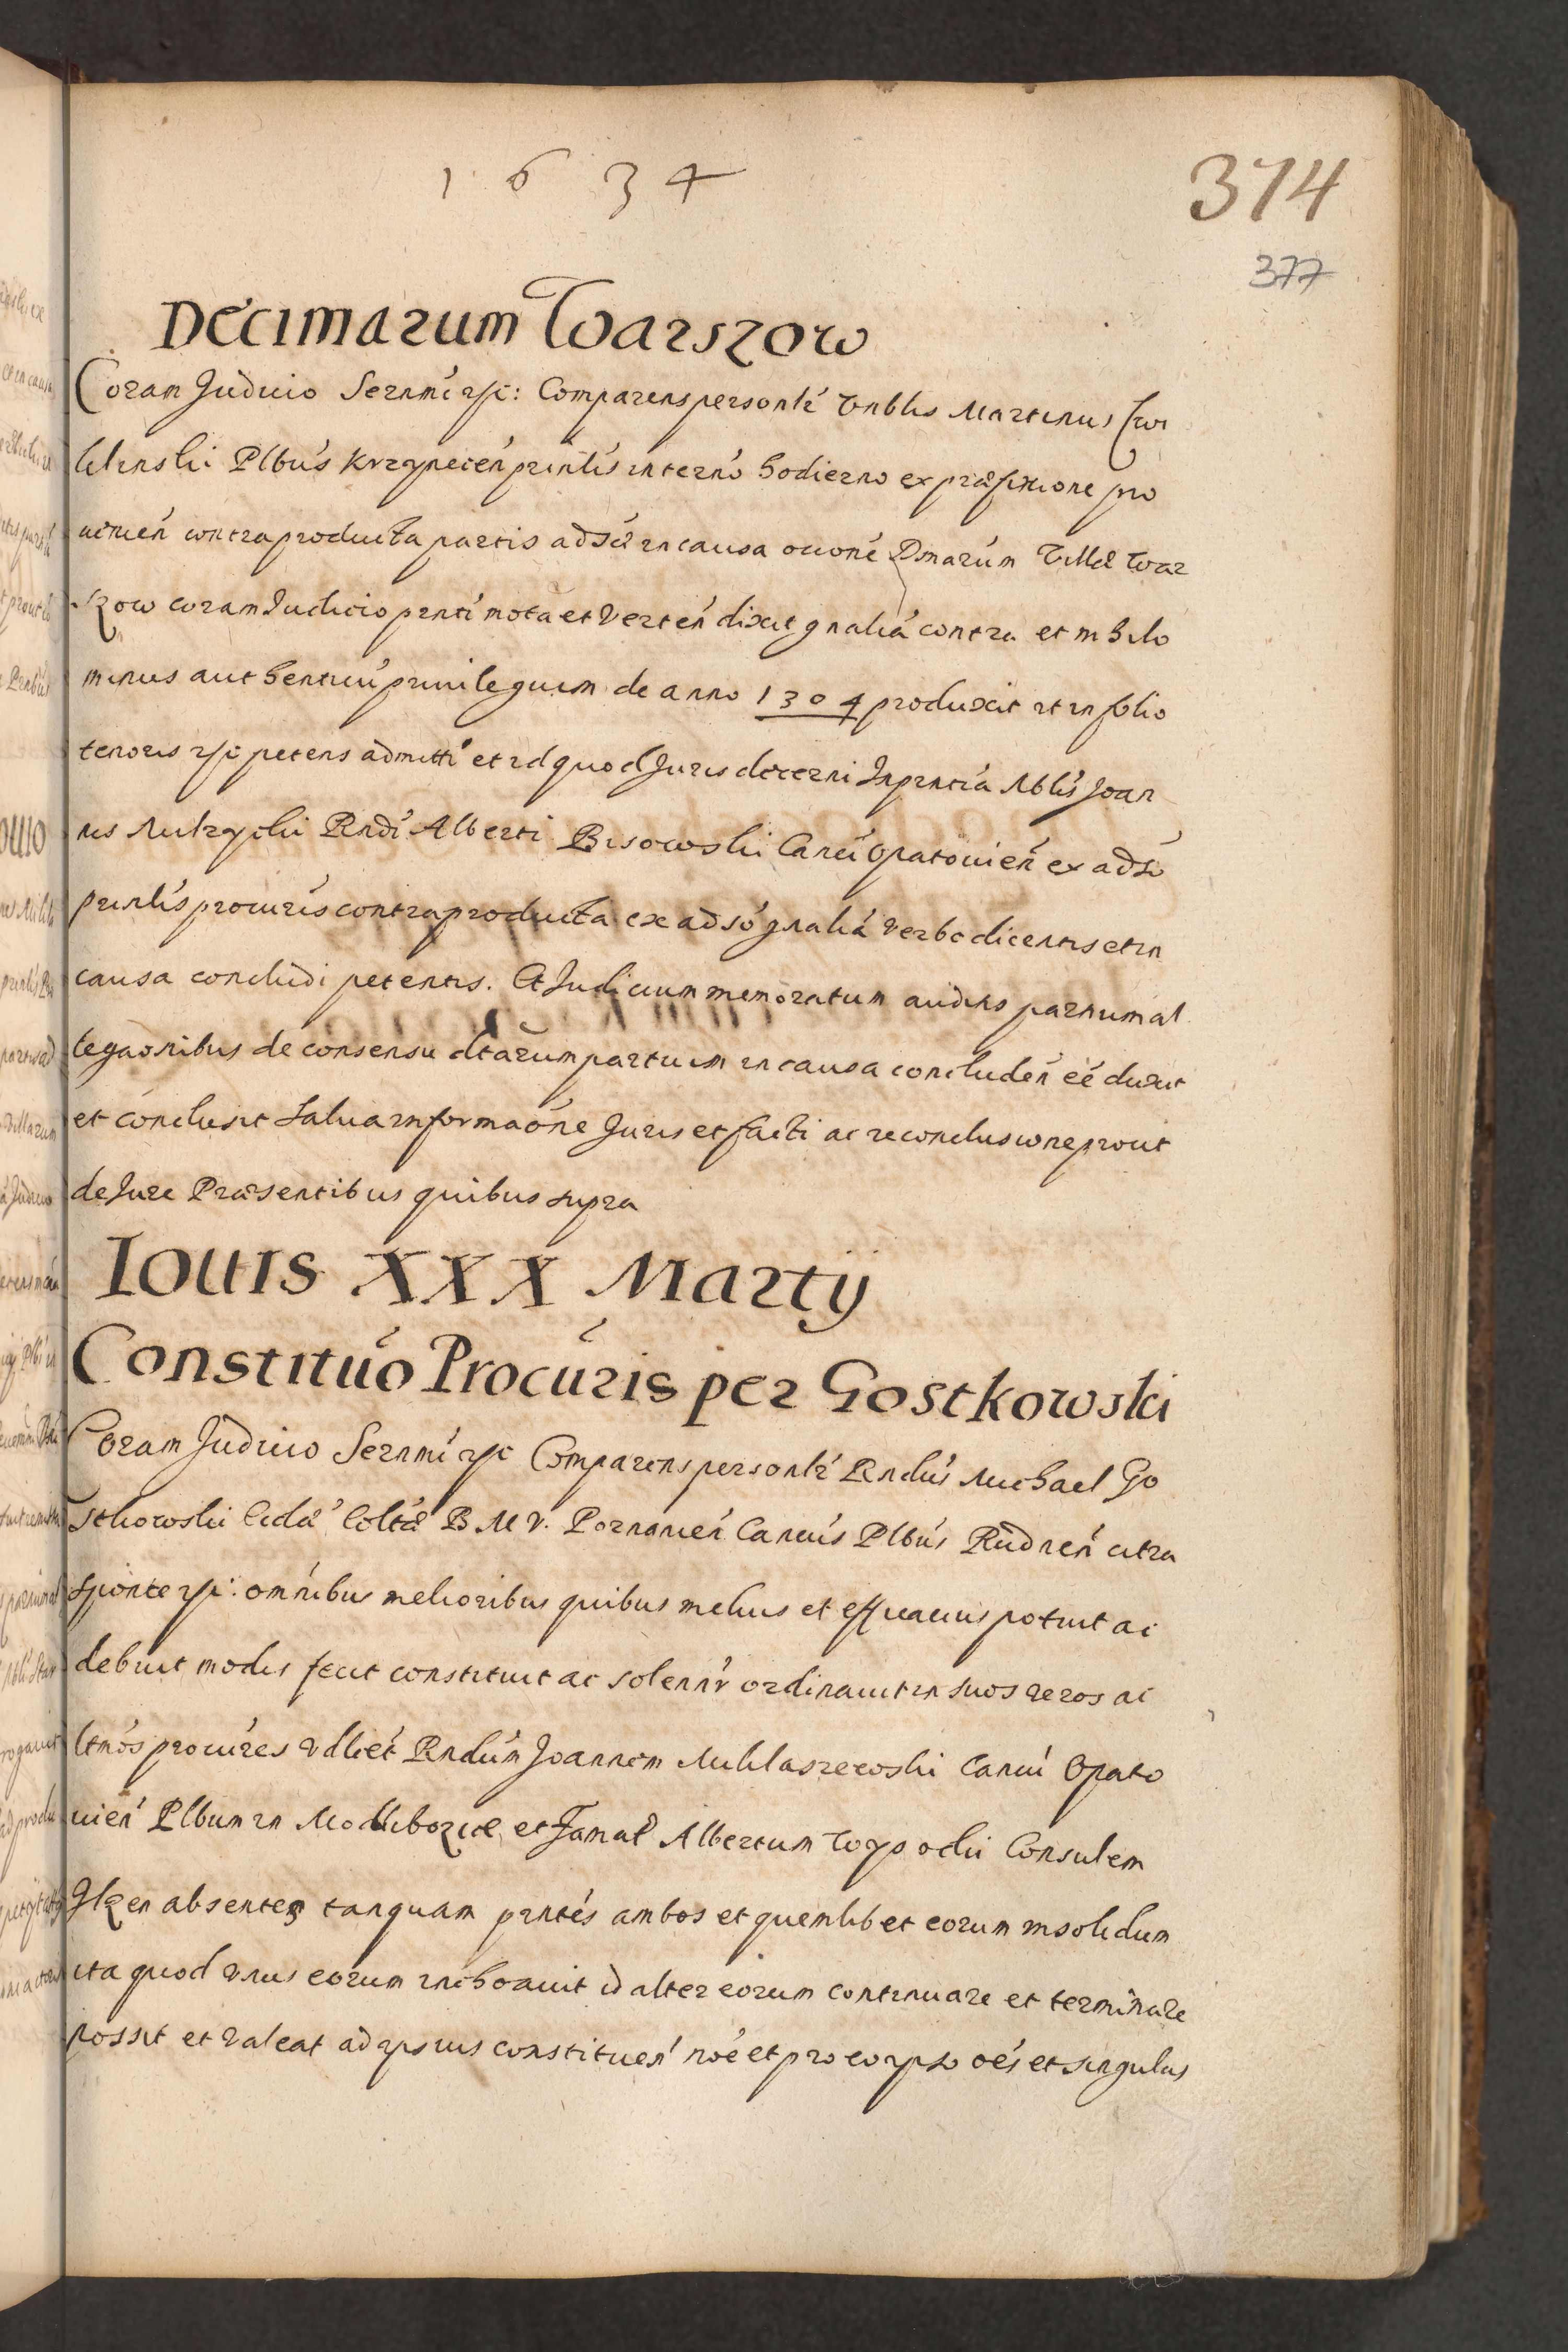 1634
374
377
Decimarum Warszow
Coram Judicio Sernmi etc: Comparens personlr Vnblis Martinus
Plbus Krzynecen prinlis in terno hodierno ex praefixione pro
uenien contra producta partis adsae in causa oconé Dmarum Villae War
szow coram Judicio pnti mota et Verten dixit gnalia contra et nihilo
minus authenticu priuilegium de anno 1304 produxit et in folio
tenoris etc petens admitti et id quod Juris decerni In pntia Nblis Joan
nis Rndi Alberti Bisowski Canci Opatouien ex adso
prinlis procuris contra producta ex adso gnalia verbo dicentis et in
causa concludi petentis. Et Judicium memoratum auditis partium al
legaonibus de consensu dtarum partium in causa concluden eé duxit
et conclusit Salua informaone Juris et facti ac reconclusione prout
de Jure Praesentibus quibus supra
Iouis XXX Martij
Constituo Procuris per Gostkowski
Coram Judicio Sernmi etc Comparens personlr Rndus Michael Go
stkowski Ecclae Coltae B M V. Poznanien Cancus Plbus Rudnen citra
sponte etc: omnibus melioribus quibus melius et efficacius potuit ac
debuit modis fecit constituit ac solennr ordinauit in suos veros ac
ltmos procures vdlict Rndum Joannem Miklaszewski Cancu Opato
uien Plbum in Modliborzice et Famat Albertum Consulem
Ilzen absentes tanquam pntes ambos et quemlibet eorum insolidum
ita quod vnus eorum inchoauit id alter eorum continuare et terminare
possit et valeat ad ipsius constituen noe et pro eo ipso oes et singulas